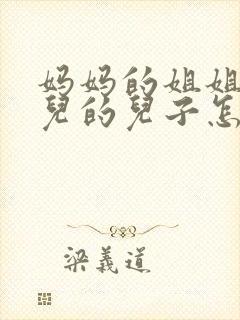 妈妈的姐姐
兒的兒子怎
梁義道